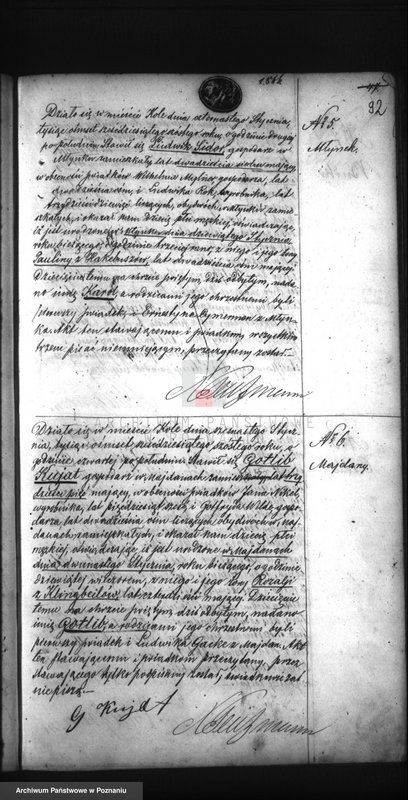 1866
92
No 5.
Młynek.
Działo się w mieście Kole dnia czternastego Stycznia,
tysiąc ośmset sześćdziesiątego szóstego roku, o godzinie drugiej
po południu. Stawił się Ludwik Sidor, gospodarz w
Młynku zamieszkały lat dwadzieścia siedm mający
w obecności świadków Wilhelma gospodarza, lat
i Ludwika wyrobnika, lat
liszących, obydwóch w Młynku zamie
szkałych, i okazał nam dziecię płci męzkiej, oświadczając
iż jest urodzone w Młynku dnia dziewiątego Stycznia
roku bieżącego, o godzinie trzeciej rano, z niego i jego żony
Pauliny z lat dwadzieścia mającej.
Dziecięciu temu na chrzcie świętym dziś odbytym, nada-
no imię Karol, a rodzicami jego chrzestnemi byli
pierwszy świadek, i Krystyna z Młyn-
ka. Akt ten stawającemu i świadkom, wszystkim
trzem pisać nieumiejącym, przeczytany został.
No 6.
Majdany.
Działo się w mieście Kole dnia Stycz-
nia, tysiąc ośmset sześćdziesiątego szóstego roku, o
godzinie czwartej po południu. Stawił się Gotlib
Kujat gospodarz w Majdanach zamieszkały lat trzy
dzieści mający, w obecności świadków Jana Nikel,
wyrobnika, lat pięćdziesiąt sześć i Gotfryda Wilde gospo-
darza, lat dwadzieścia ośm liczących, obydwóch w Maj-
danach zamieszkałych, i okazał nam dziecię płci
męzkiej, oświadczając, iż jest urodzone w Majdanach
dnia dwunastego Stycznia, roku bieżącego, o godzinie
dziewiątej wieczorem, z niego i jego żony Rozalii
z Klingbeilów, lat mającej. Dziecięciu
temu na chrzcie świętym, dziś odbytym, nadano
imię Gotlib a rodzicami jego chrzestnemi byli
pierwszy świadek i Ludwika Gacke z Majdan. Akt
ten stawającemu i świadkom przeczytany, przez
stawającego tylko podpisany został, świadkowie zaś
nie piszą.
G Kujat
Archiwum Państwowe w Poznaniu